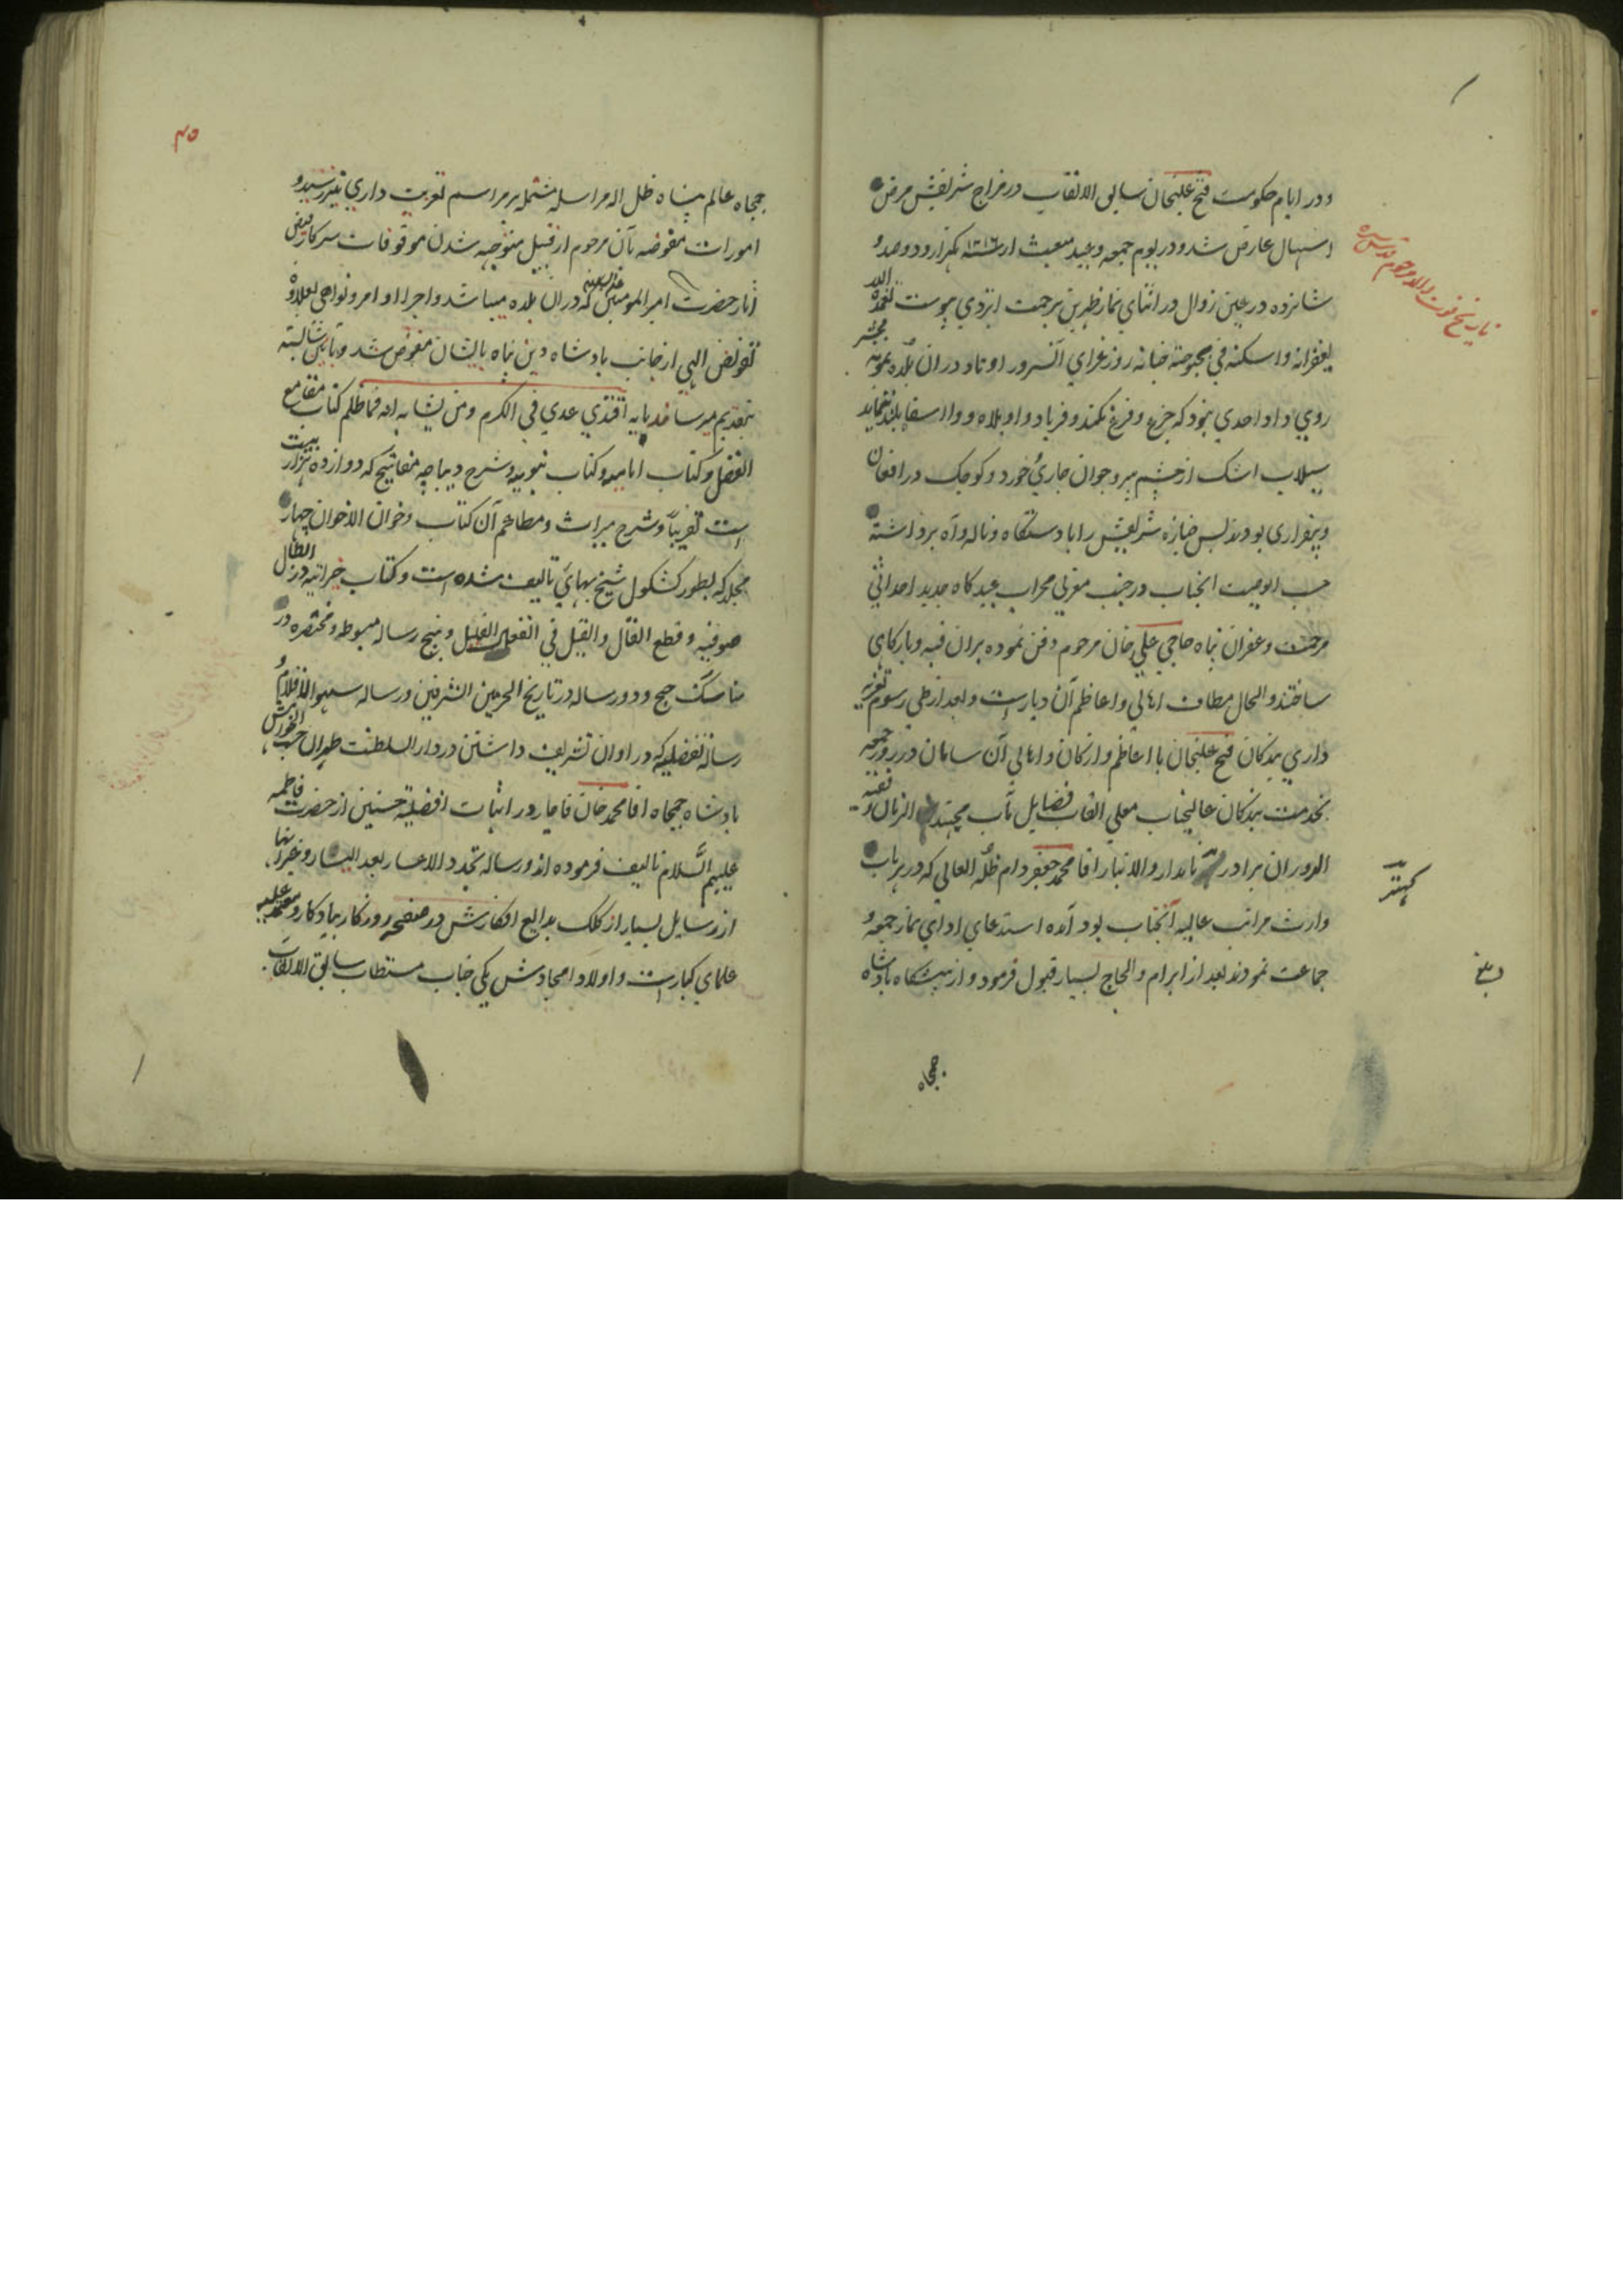 و در ایام حکومت فتح علیخان سابق الالقاب در مزاج شریفش مرض
اسهال عارض شد و در یوم جمعه و عید مبعث از سنه ۱۲۱۶ یکهزار و دوصد و
شانزده در عین زوال در اثنای نماز ظهرین برحمت ایزدی پیوست تغمده الله
بغفرانه و اسکنه فی بحبوحة جنانه روز عزای آنسرور اوتاد در ان بلده نمونه محشر
روی داد احدی نبود که جزع و فزع نکند و فریاد واویلاه و وااسفا بلند ننماید
سیلاب اشک از چشم پیر و جوان جاری خورد و کوچک در افغان
و بیقراری بودند پس جنازه شریفش را با دستگاه و ناله و آه برداشته
حسب الوصیت انجناب در جنب مغربی محراب عیدگاه جدید احداثی
مرحمت و غفران پناه حاجی علی خان مرحوم دفن نموده بران قبه و بارگاهی
ساختند و الحال مطاف اهالی و اعاظم آن دیار است و بعد از طی رسوم تعزیه
داری بندگان فتح علیخان با اعاظم و ارکان و اهالی آن سامان در روز جمعه
بخدمت بندگان عالیجناب معلی القاب فضایل مآب مجتهد الزمان و فقیه
الدوران برادر نامدار والاتبار اقا محمد جعفر دام ظله العالی که در هر باب
وارث مراتب عالیه آنجناب بود آمده استدعای ادای نماز جمعه و
جماعت نمودند بعد از ابرام و الحاج بسیار قبول فرمود و از پیشگاه پادشاه
جمجاه
تاریخ فوت والد مرحوم قدس سره
کهتر
۴۵
جمجاه عالم پناه ظل اله مراسله مشتمله بر مراسم تعزیت داری نیز رسید و
امورات مفوضه بآن مرحوم از قبیل متوجه شدن موقوفات سرکار فیض
آثار حضرت امیر المومنین علیه السلام که در ان بلده میباشد و اجرا اوامر و نواهی بعلاوه
تفویض الهی از جانب پادشاه دین پناه بایشان مفوض شد و
بتقدیم میرساند بابه اقتدی عدی فی الکرم و من یشابه ابه فما ظلم کتاب مقامع
الفضل و کتاب امامیه و کتاب نبویه و شرح دیباجه مفاتیح که دوازده هزار بیت
است تقریباً و شرح میراث و مطاعم آن کتاب و خوان الاخوان چهار
مجلد که بطور کشکول شیخ بهائی تالیف شده است و کتاب خیراتیه در ابطال
صوفیه و قطع القال و القیل فی انفعال القلیل و پنج رساله مبسوطه و مختصره در
مناسک حج و دو رساله در تاریخ الحرمین الشریفین و رساله سهو الاقلام و
رساله تفضیلیه که در اوان تشریف داشتن در دار السلطنت طهران حسب الخواهش
پادشاه جمجاه اقا محمد خان قاجار در اثبات افضلیة حسنین از حضرت فاطمه
علیهم السّلام تالیف فرموده اند و رساله تجدد الاعسار بعد الیسار و غیر اینها
از رسایل بسیار از کلک بدایع افکارش در صفحه روزگار بیادگار و معتمد علیه
علمای کبار است و اولاد امجادش یکی جناب مستطاب سابق الالقاب